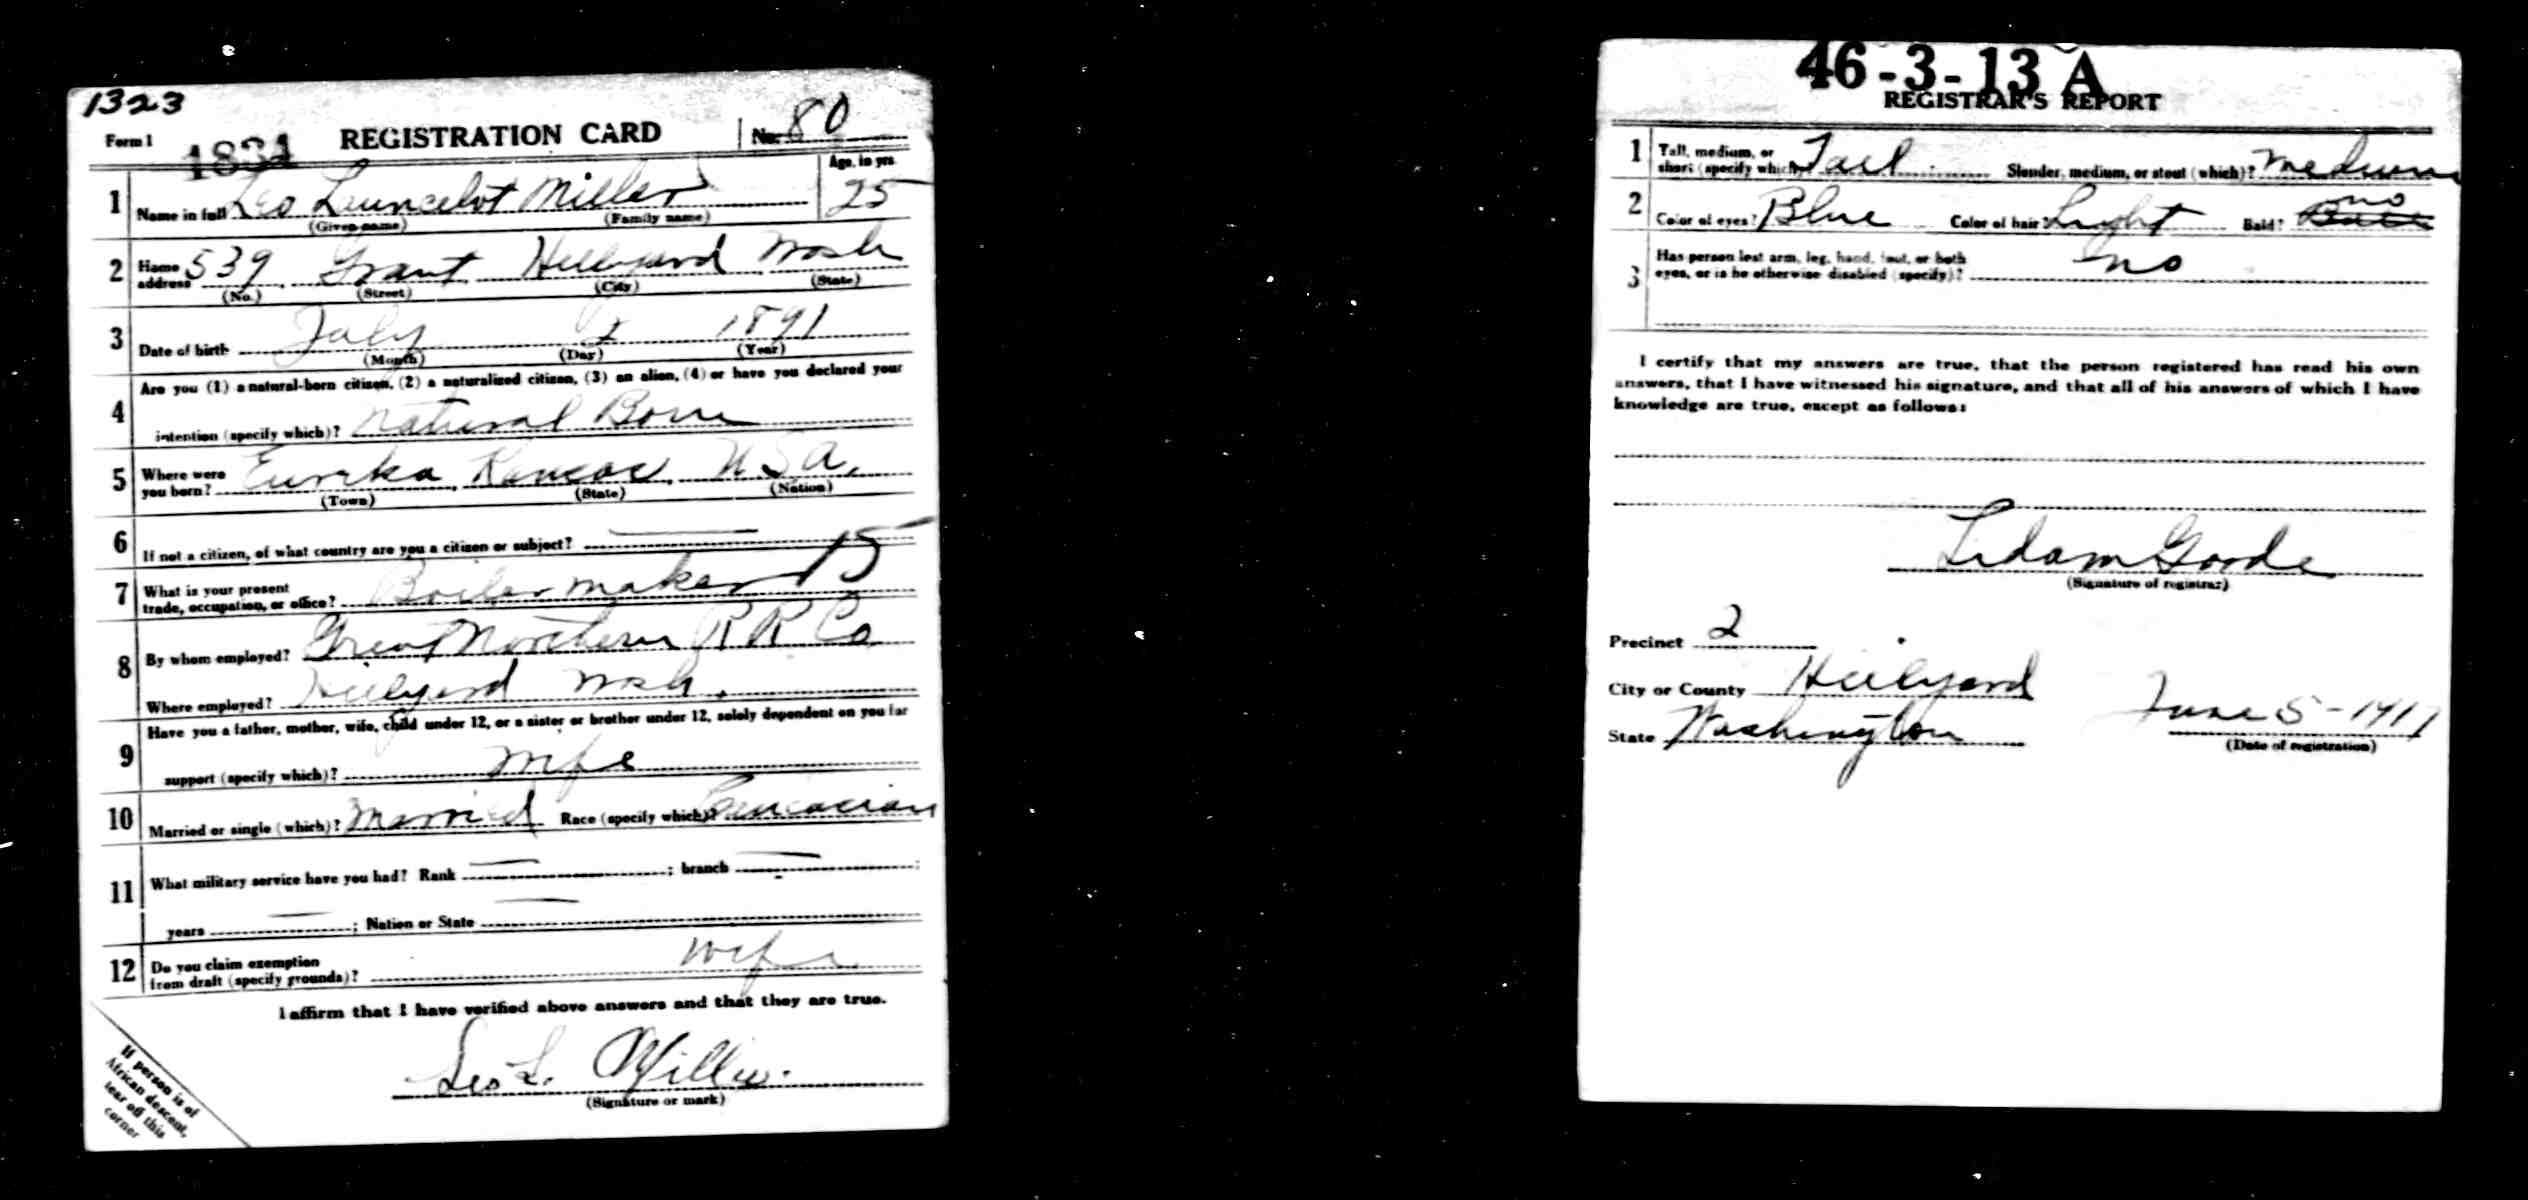 1323
Form 1 1834 REGISTRATION CARD No. 80
1 Name in full Leo Launcelot Miller Age, in yrs 25
(Given name) (Family name)
2 Home address 539 Grant Hillyard Wash
(No.) (Street) (City) (State)
3 Date of birth July 2 1891
(Month) (Day) (Year)
Are you (1) a natural-born citizen, (2) a naturalized citizen, (3) an alien, (4) or have you declared your
4 intention (specify which)? Natural Born
5 Where were you born? Eureka Kansas, U S A.
(Town) (State) (Nation)
6 If not a citizen, of what country are you a citizen or subject?
7 What is your present trade, occupation, or office? Boiler maker 15
8 By whom employed? Great Northern R R Co
Where employed? Hillyard Wash.
Have you a father, mother, wife, child under 12, or a sister or brother under 12, solely dependent on you for
9 support (specify which)? Wife
10 Married or single (which)? Married Race (specify which)? Caucasian
11 What military service have you had? Rank ; branch ;
years ; Nation or State
12 Do you claim exemption from draft (specify grounds)? Wife
I affirm that I have verified above answers and that they are true.
Leo L. Miller.
(Signature or mark)
If person is of
African descent,
tear off this
corner
46-3-13 A
REGISTRAR'S REPORT
1 Tall, medium, or short (specify which)? Tall Slender, medium, or stout (which)? Medium
2 Color of eyes? Blue Color of hair? Light Bald? no
3 Has person lost arm, leg, hand, foot, or both eyes, or is he otherwise disabled (specify)? no
I certify that my answers are true, that the person registered has read his own
answers, that I have witnessed his signature, and that all of his answers of which I have
knowledge are true, except as follows:
Goode
(Signature of registrar)
Precinct 2
City or County Hillyard
State Washington June 5-1917
(Date of registration)